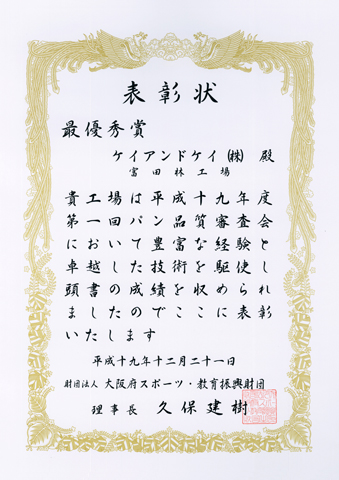 表彰状
最優秀賞
ケイアンドケイ㈱ 殿
富田林工場
貴工場は平成十九年度
第一回パン品質審査会
において豊富な経験と
卓越した技術を駆使し
頭書の成績を収められ
ましたのでここに表彰
いたします
平成十九年十二月二十一日
財団法人 大阪府スポーツ・教育振興財団
理事長 久保建樹